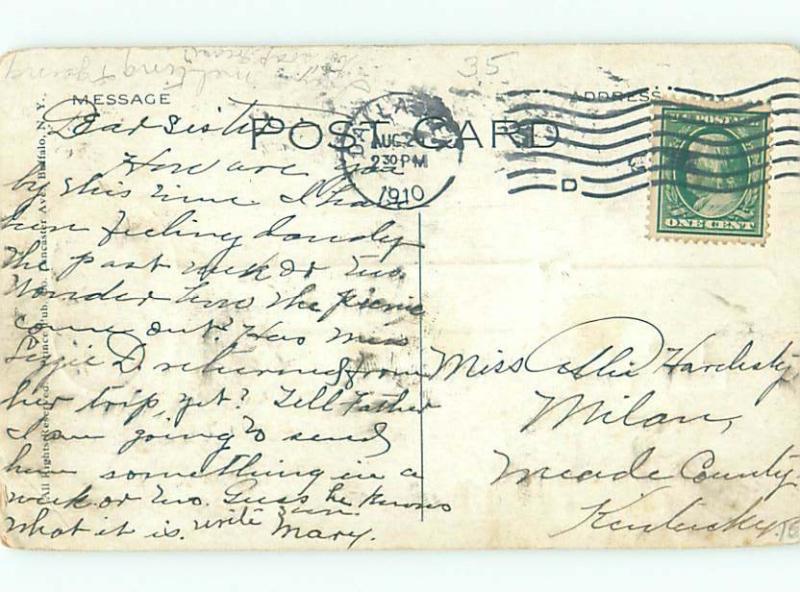 35
MESSAGE
ADDRESS
POST CARD
AUG 2
2 30 PM
1910
D
U.S. POSTAGE
ONE CENT
All Rights Reserved. Pub. Co. Lancaster Ave. Buffalo, N. Y.
Dear Sister
How are you
by this time I have
been feeling dandy
the past week or two
Wonder how the picnic
come out? Has Miss
Lizzie D. returned from
her trip, yet? Tell Father
I am going to send
him something in a
week or two. Guess he knows
what it is. write soon. Mary.
Miss Allie Hardesty
Milan,
Meade County
Kentucky.